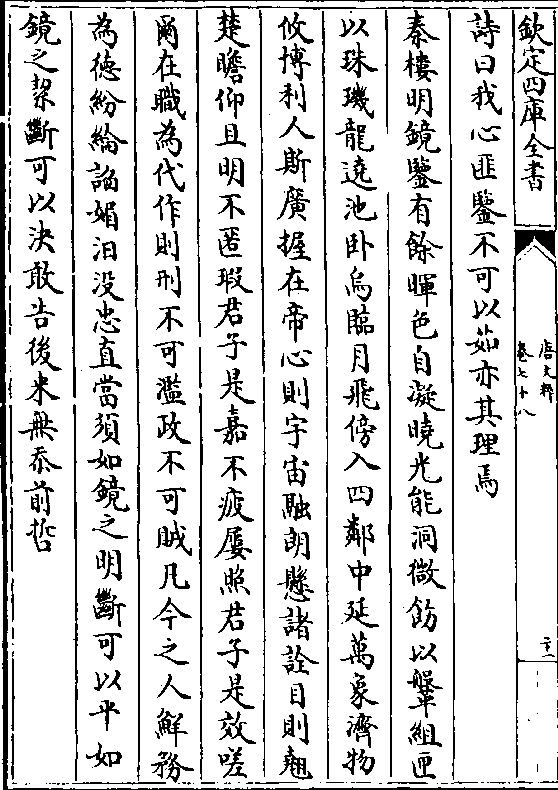 欽定四庫全書
唐文粹
卷七十八
詩曰我心匪鑒不可以茹亦其理焉
秦樓明鏡鑒有餘暉色自凝曉光能洞微飭以鞶組匣
以珠璣龍遶池卧烏臨月飛傍入四鄰中延萬象濟物
攸博利人斯廣握在帝心則宇宙融朗懸諸詮目則翹
楚瞻仰且明不匿瑕君子是嘉不疲屢照君子是效嗟
爾在職為代作則刑不可濫政不可贼凡今之人鮮務
為徳紛綸謟媚汩没忠直當須如鏡之明斷可以平如
鏡之絜斷可以決敢告後來無忝前哲